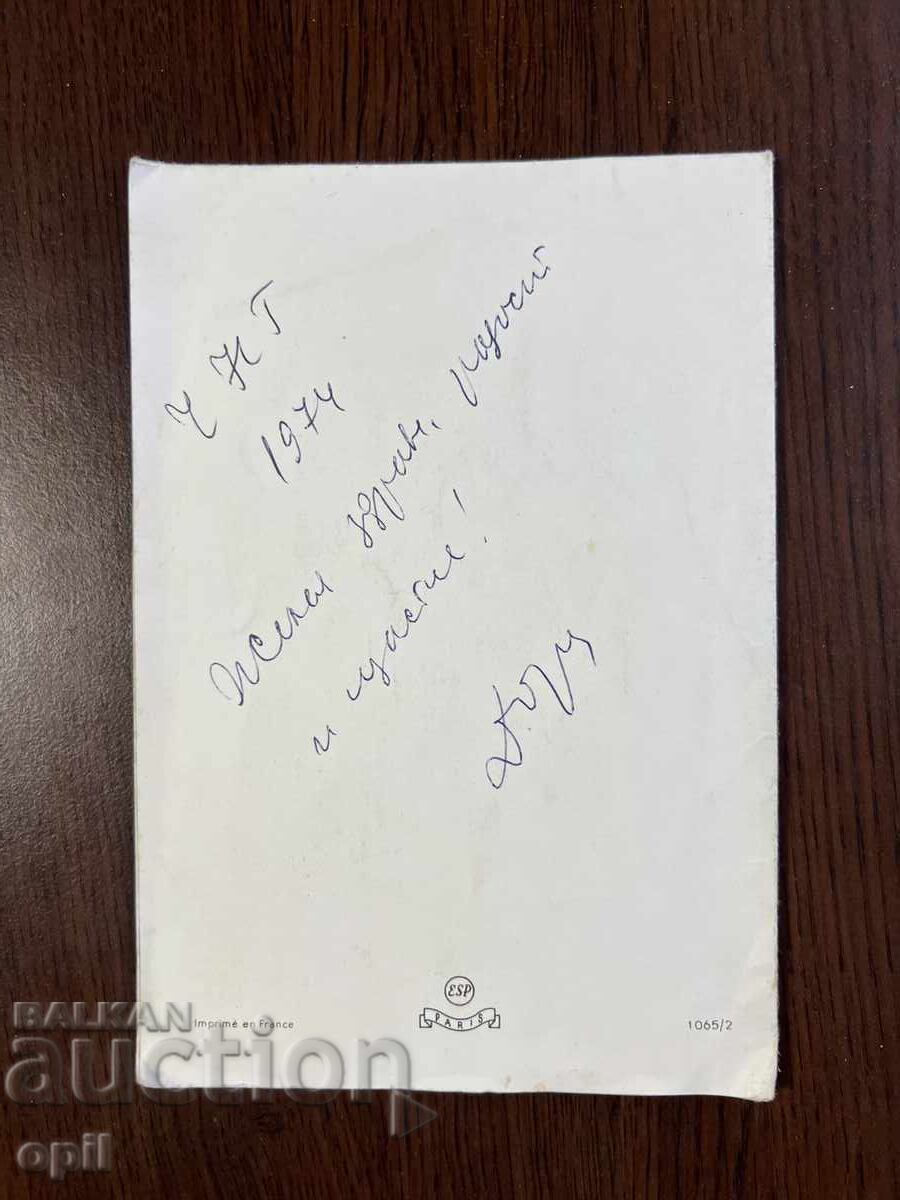 Ч Н Г
1974
Желая здраве, радост
и щастие!
ESP
PARIS
Imprimé en France
1065/2
BALKAN
auction
opil